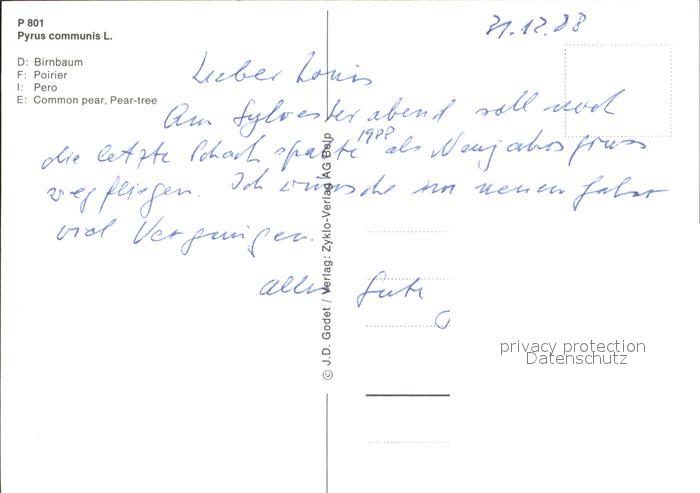 P 801
Pyrus communis L.
D: Birnbaum
F: Poirier
I: Pero
E: Common pear, Pear-tree
31.12.88
Lieber Louis
Am Sylvesterabend soll noch
die letzte Schachsparte 1988 als Neujahrsgruss
wegfliegen. Ich wünsche im neuen Jahr
viel Vergnügen.
Alles Gute
© J.D. Godet / Verlag: Zyklo-Verlag AG Belp
privacy protection
Datenschutz